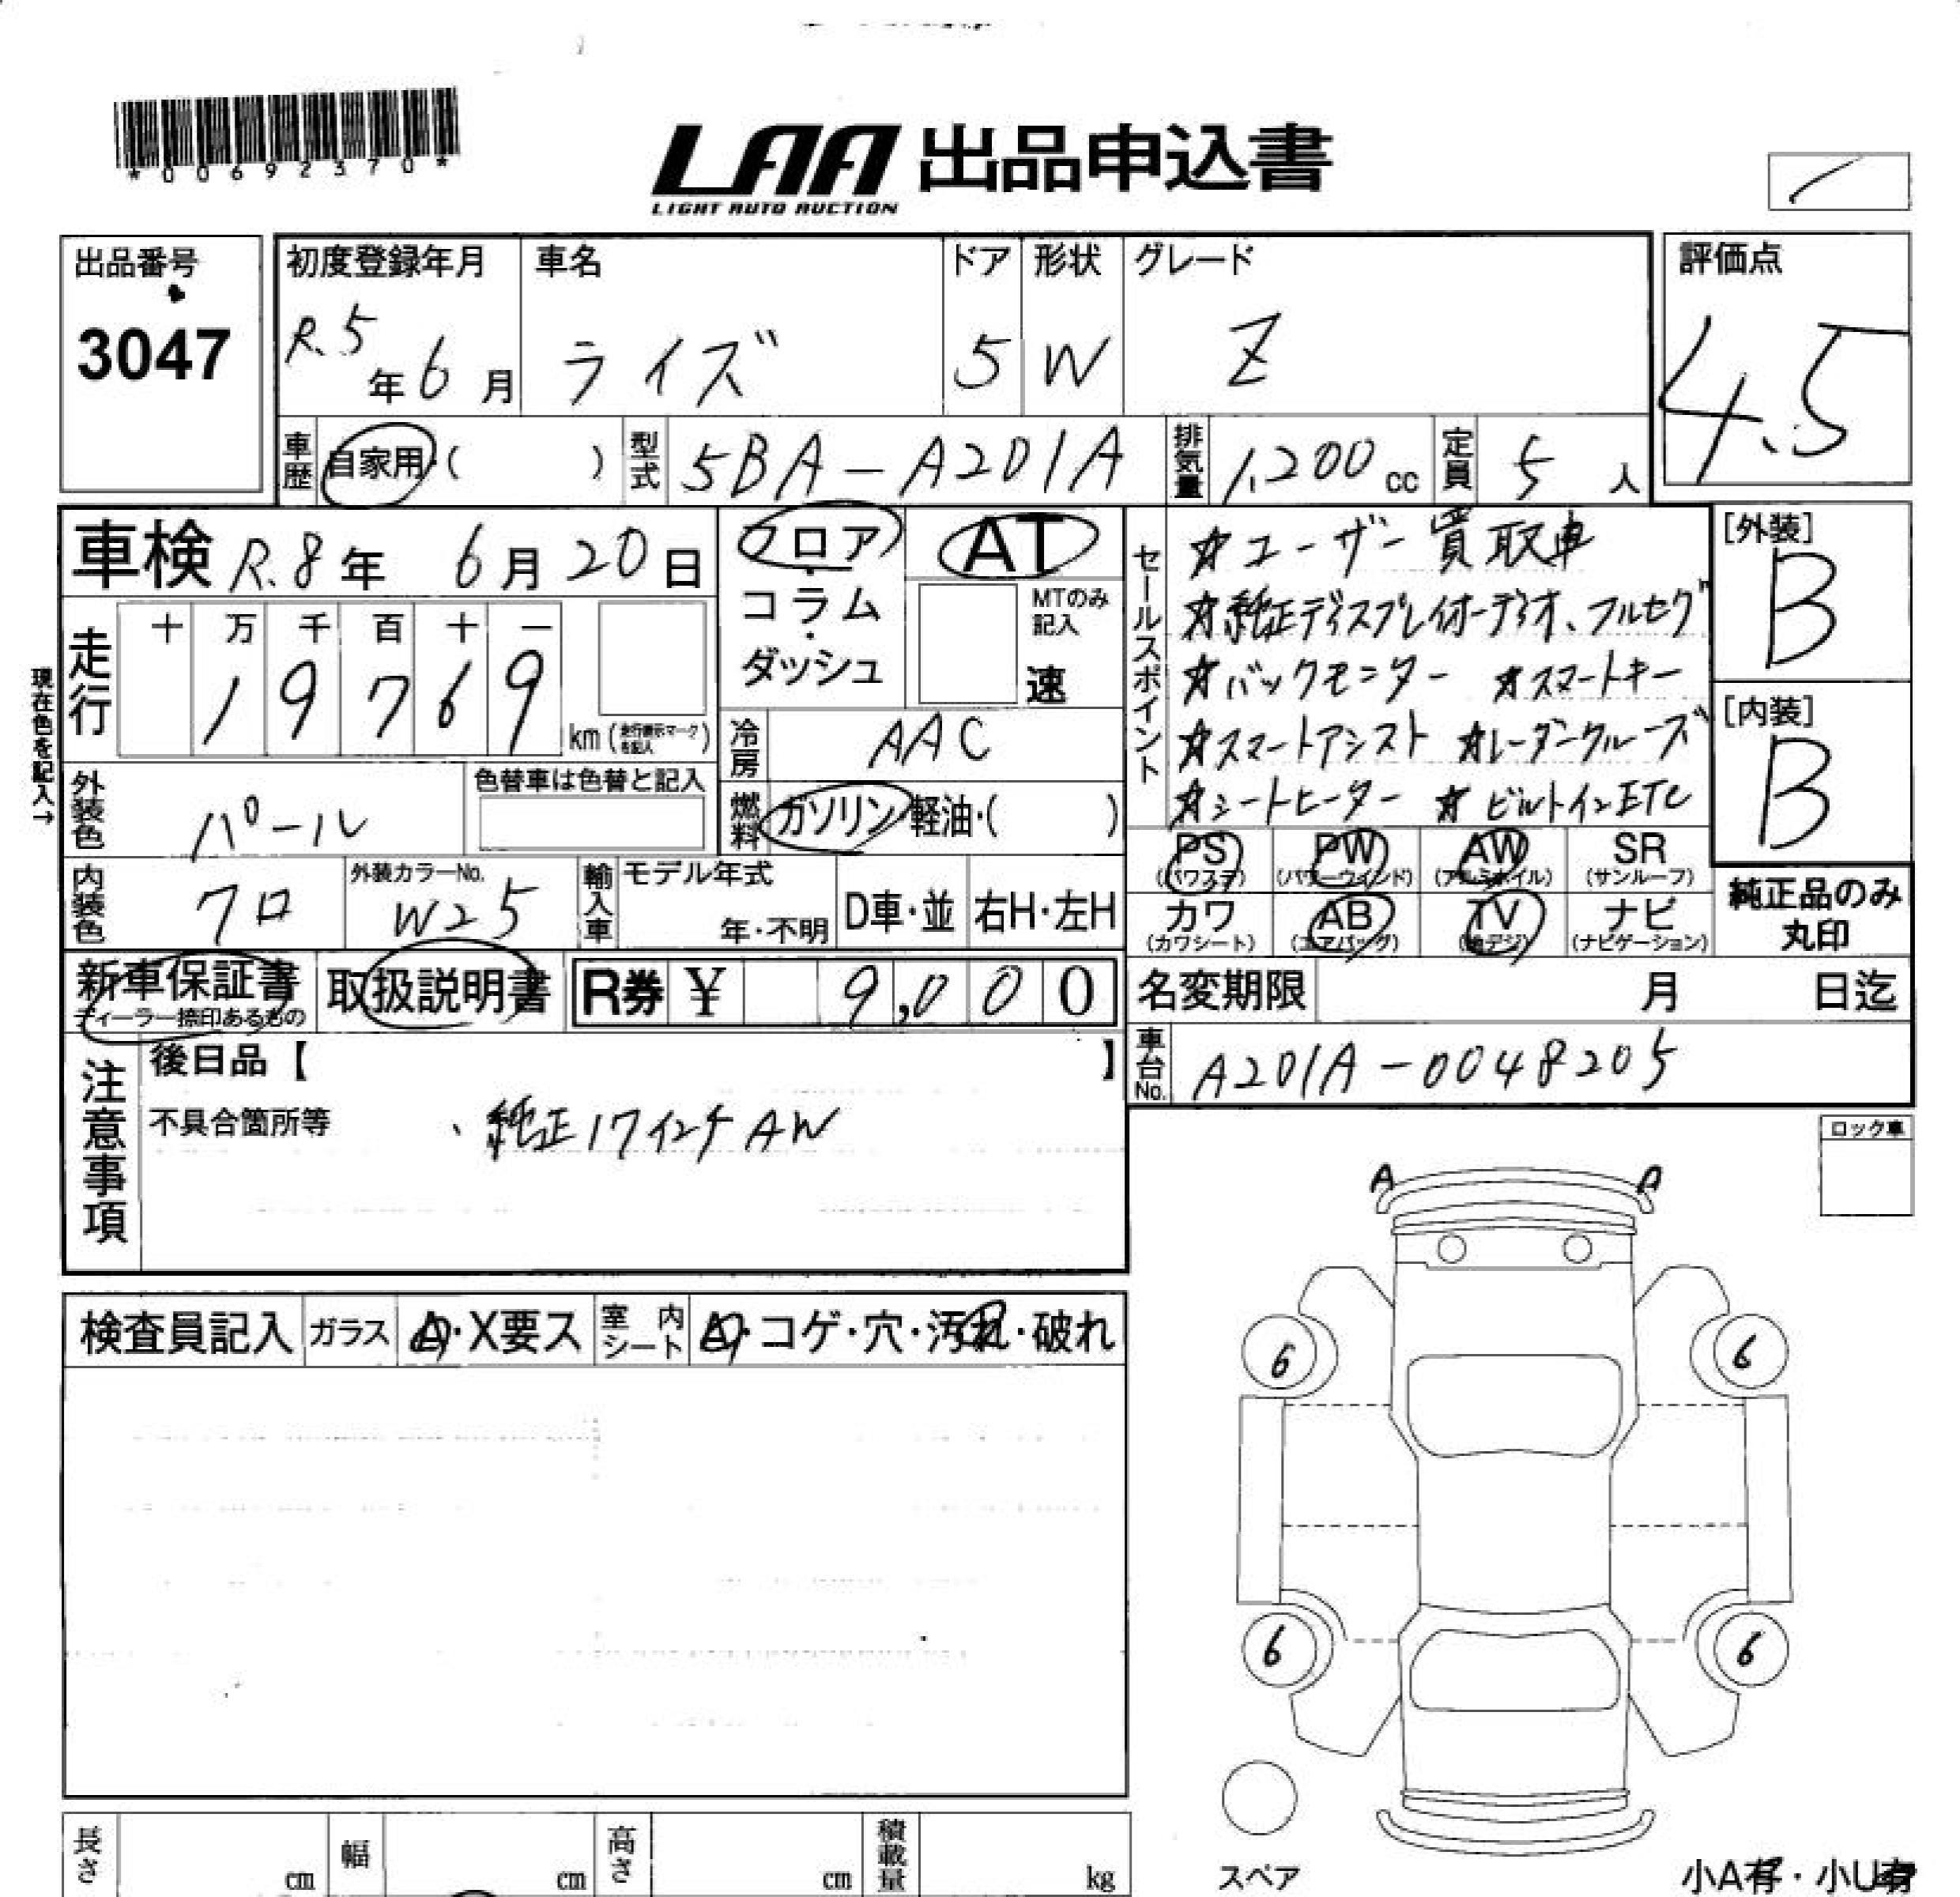 *00692370*
LAA 出品申込書
LIGHT AUTO AUCTION
出品番号
3047
初度登録年月
R.5年6月
車名
ライズ
ドア
5
形状
W
グレード
Z
評価点
4.5
車歴
自家用・( )
型式
5BA-A201A
排気量
1,200cc
定員
5人
車検 R.8年 6月20日
フロア・コラム・ダッシュ
AT
MTのみ記入
速
走行
十 万 千 百 十 一
1 9 7 6 9
km(走行表示マークを記入)
現在色を記入→
冷房
AAC
外装色
パール
色替車は色替と記入
燃料
ガソリン・軽油・( )
内装色
クロ
外装カラーNo.
W25
輸入車
モデル年式
年・不明
D車・並
右H・左H
セールスポイント
☆ユーザー買取車
☆純正ディスプレイオーディオ、フルセグ
☆バックモニター ☆スマートキー
☆スマートアシスト ☆レーダークルーズ
☆シートヒーター ☆ビルトインETC
[外装]
B
[内装]
B
PS(パワステ)
PW(パワーウィンド)
AW(アルミホイル)
SR(サンルーフ)
カワ(カワシート)
AB(エアバッグ)
TV(地デジ)
ナビ(ナビゲーション)
純正品のみ丸印
新車保証書
ディーラー捺印あるもの
取扱説明書
R券 ¥ 9,000
名変期限 月 日迄
車台No.
A201A-0048205
注意事項
後日品【 】
不具合箇所等
、純正17インチAW
ロック車
A A
検査員記入
ガラス
A・X要ス
室内シート
A・コゲ・穴・汚れ・破れ
6 6
6 6
スペア
小A有・小U有
長さ cm
幅 cm
高さ cm
積載量 kg